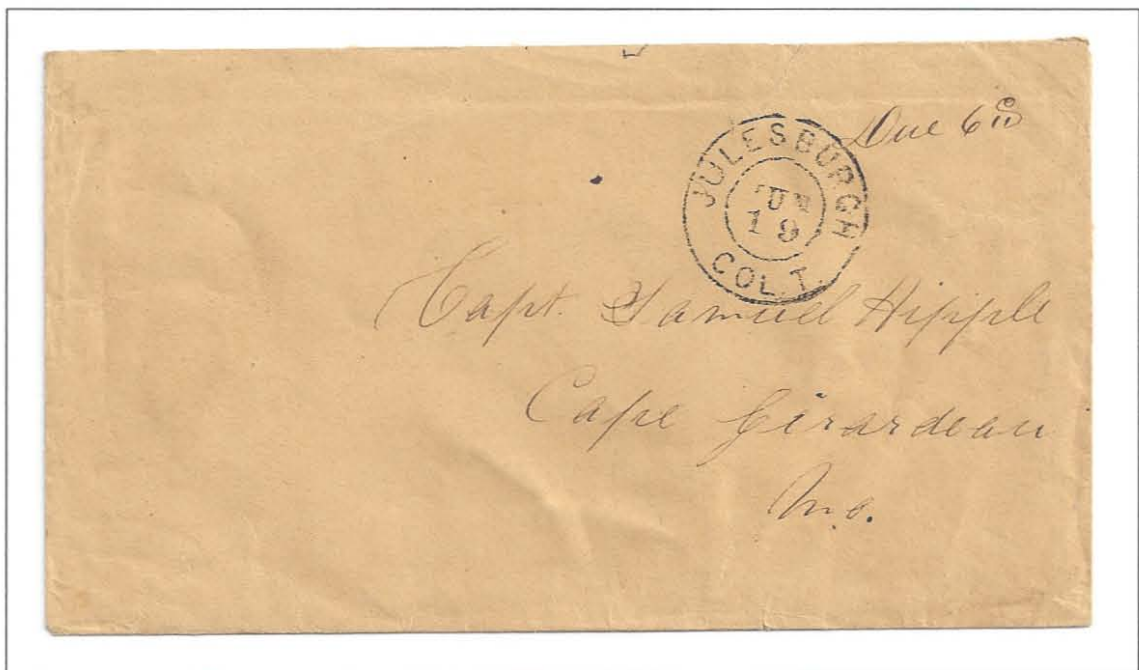 Due 6cs
JULESBURGH
JUN
19
COL. T.
Capt. Samuel Hipple
Cape Girardeau
Mo.